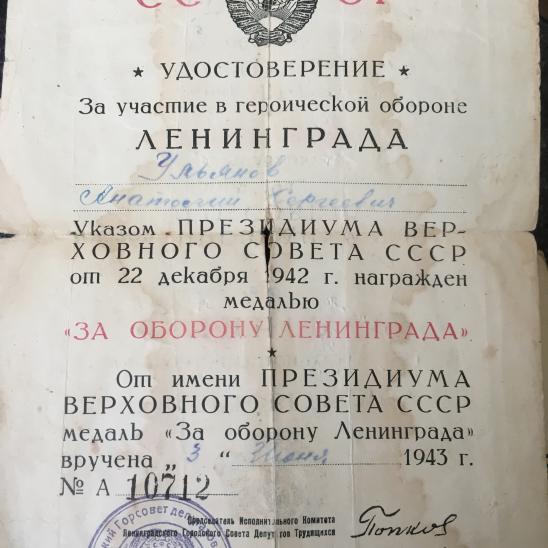 СССР
★ УДОСТОВЕРЕНИЕ ★
За участие в героической обороне
ЛЕНИНГРАДА
Ульянов
Анатолий Сергеевич
Указом ПРЕЗИДИУМА ВЕР-
ХОВНОГО СОВЕТА СССР
от 22 декабря 1942 г. награжден
медалью
«ЗА ОБОРОНУ ЛЕНИНГРАДА»
★
От имени ПРЕЗИДИУМА
ВЕРХОВНОГО СОВЕТА СССР
медаль «За оборону Ленинграда»
вручена „3“ Июня 1943 г.
№ А 10712
Председатель Исполнительного Комитета
Ленинградского Городского Совета Депутатов Трудящихся
Попков
ский Горсовет депутатов